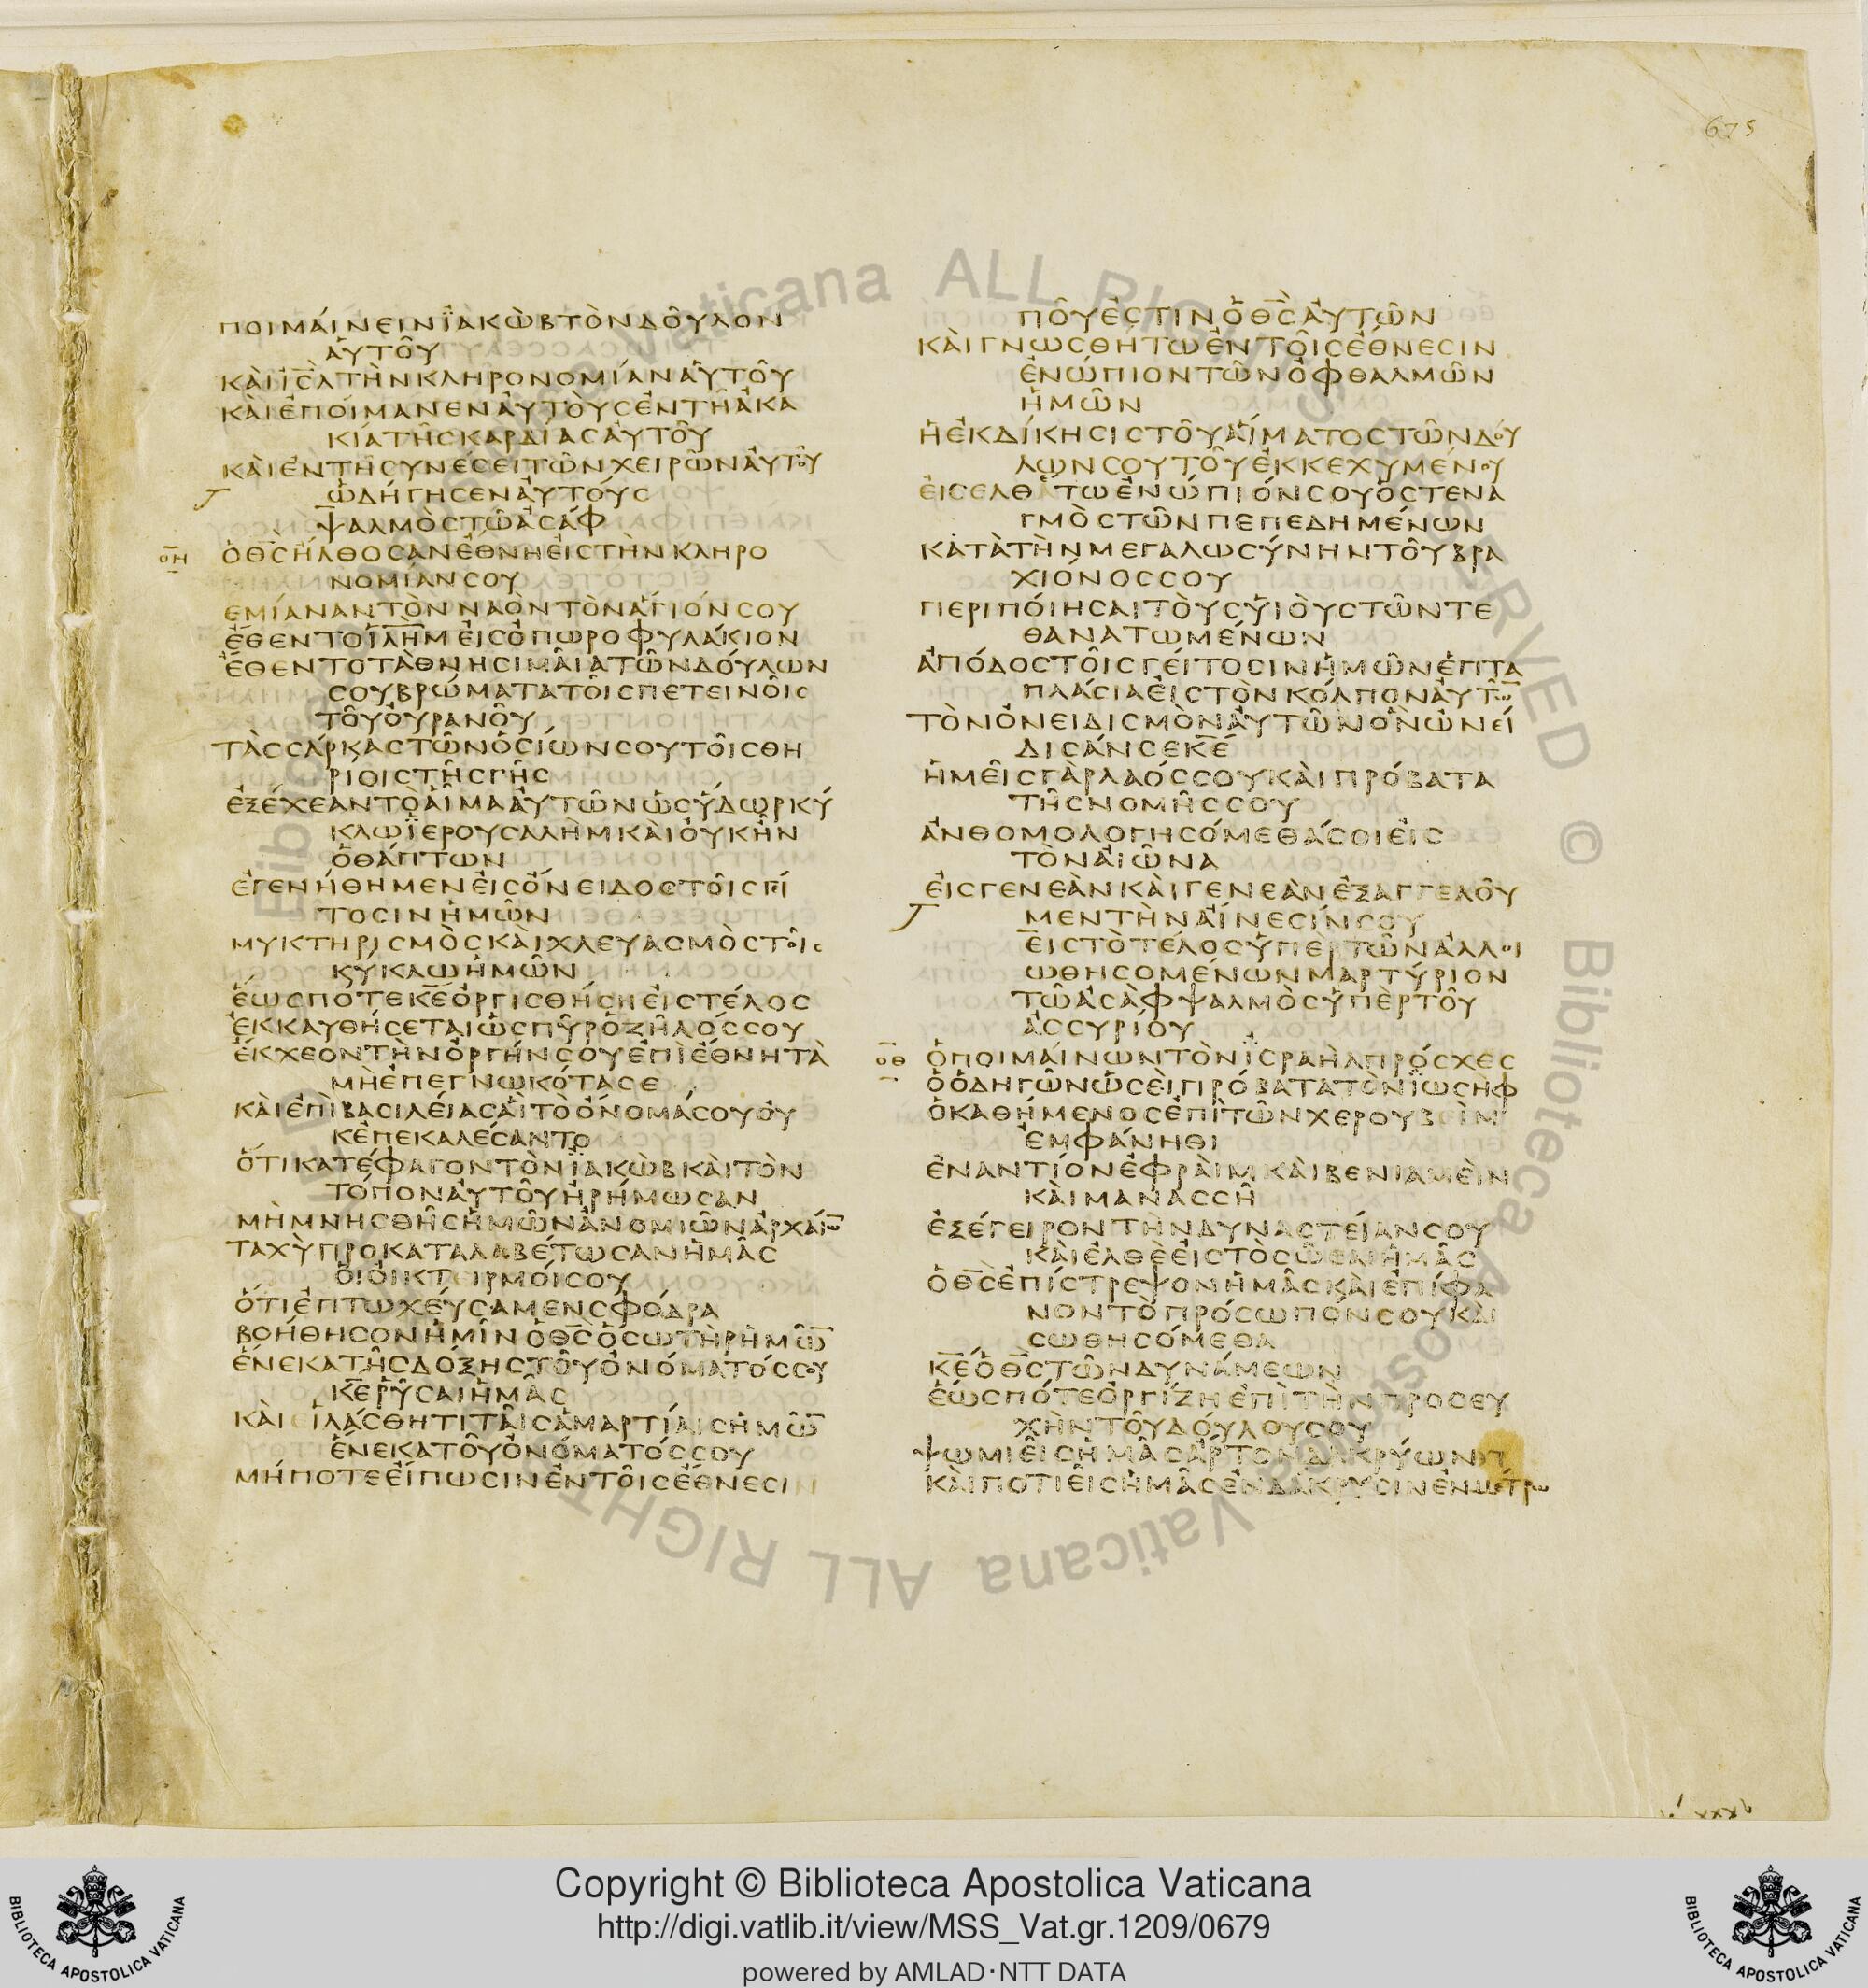 675
ΠΟΙΜΑΊΝΕΙΝ ΪΑΚῺΒ ΤῸΝ ΔΟΥ͂ΛΟΝ
ΑΥ̓ΤΟΥ͂
ΚΑῚ ΙΣ̅Λ̅ ΤῊΝ ΚΛΗΡΟΝΟΜΊΑΝ ΑΥ̓ΤΟΥ͂
ΚΑῚ ἘΠΟΊΜΑΝΕΝ ΑΥ̓ΤΟῪϹ ἘΝ ΤΗ͂ ἈΚΑ
ΚΊΑ ΤΗ͂Ϲ ΚΑΡΔΊΑϹ ΑΥ̓ΤΟΥ͂
ΚΑῚ ἘΝ ΤΗ͂ ϹΥΝΈϹΕΙ ΤΩ͂Ν ΧΕΙΡΩ͂Ν ΑΥ̓ΤΟΥ͂
ὩΔΉΓΗϹΕΝ ΑΥ̓ΤΟΎϹ
ΨΑΛΜῸϹ ΤΩ͂ ἈϹΆΦ
ΟΗ Ὁ Θ̅Ϲ̅ ἬΛΘΟϹΑΝ ἜΘΝΗ ΕἸϹ ΤῊΝ ΚΛΗΡΟ
ΝΟΜΊΑΝ ϹΟΥ
ΕΜΊΑΝΑΝ ΤῸΝ ΝΑῸΝ ΤῸΝ ἍΓΙΌΝ ϹΟΥ
ἜΘΕΝΤΟ Ι̅Λ̅Η̅Μ̅ ΕἸϹ ὈΠΩΡΟΦΥΛΆΚΙΟΝ
ἜΘΕΝΤΟ ΤᾺ ΘΝΗϹΙΜΑΙ͂Α ΤΩ͂Ν ΔΟΎΛΩΝ
ϹΟΥ ΒΡΏΜΑΤΑ ΤΟΙ͂Ϲ ΠΕΤΕΙΝΟΙ͂Ϲ
ΤΟΥ͂ ΟΥ̓ΡΑΝΟΥ͂
ΤᾺϹ ϹΆΡΚΑϹ ΤΩ͂Ν ὉϹΊΩΝ ϹΟΥ ΤΟΙ͂Ϲ ΘΗ
ΡΊΟΙϹ ΤΗ͂Ϲ ΓΗ͂Ϲ
ἘΞΈΧΕΑΝ ΤῸ ΑἿΜΑ ΑΥ̓ΤΩ͂Ν ὩϹ ὝΔΩΡ ΚΎ
ΚΛΩ ΪΕΡΟΥϹΑΛῊΜ ΚΑῚ ΟΥ̓Κ ἮΝ
Ὁ ΘΆΠΤΩΝ
ἘΓΕΝΉΘΗΜΕΝ ΕἸϹ ὌΝΕΙΔΟϹ ΤΟΙ͂Ϲ ΓΊ
ΤΟϹΙΝ ἩΜΩ͂Ν
ΜΥΚΤΗΡΙϹΜῸϹ ΚΑῚ ΧΛΕΥΑϹΜῸϹ ΤΟΙ͂Ϲ
ΚΎΚΛΩ ἩΜΩ͂Ν
ἝΩϹ ΠΌΤΕ Κ̅Ε̅ ὈΡΓΙϹΘΉϹΗ ΕἸϹ ΤΈΛΟϹ
ἘΚΚΑΥΘΉϹΕΤΑΙ ὩϹ ΠΥ͂Ρ Ὁ ΖΗ͂ΛΌϹ ϹΟΥ
ἜΚΧΕΟΝ ΤῊΝ ὈΡΓΉΝ ϹΟΥ ἘΠῚ ἜΘΝΗ ΤᾺ
ΜῊ ἘΠΕΓΝΩΚΌΤΑ ϹΕ
ΚΑῚ ἘΠῚ ΒΑϹΙΛΕΊΑϹ ΑἻ ΤῸ ὌΝΟΜΆ ϹΟΥ ΟΥ̓
Κ ἘΠΕΚΑΛΈϹΑΝΤΟ
ὍΤΙ ΚΑΤΈΦΑΓΟΝ ΤῸΝ ΪΑΚῺΒ ΚΑῚ ΤῸΝ
ΤΌΠΟΝ ΑΥ̓ΤΟΥ͂ ἨΡΉΜΩϹΑΝ
ΜῊ ΜΝΗϹΘΗ͂Ϲ ἩΜΩ͂Ν ἈΝΟΜΙΩ͂Ν ἈΡΧΑΊΩ̅
ΤΑΧῪ ΠΡΟΚΑΤΑΛΑΒΈΤΩϹΑΝ ἩΜΑ͂Ϲ
ΟἹ ΟἸΚΤΕΙΡΜΟΊ ϹΟΥ
ὍΤΙ ἘΠΤΩΧΕΎϹΑΜΕΝ ϹΦΌΔΡΑ
ΒΟΉΘΗϹΟΝ ἩΜΙ͂Ν Ὁ Θ̅Ϲ̅ Ὁ ϹΩΤῊΡ ἩΜΩ̅
ἝΝΕΚΑ ΤΗ͂Ϲ ΔΌΞΗϹ ΤΟΥ͂ ὈΝΌΜΑΤΌϹ ϹΟΥ
Κ̅Ε̅ ΡΥ͂ϹΑΙ ἩΜΑ͂Ϲ
ΚΑῚ ΕἹΛΆϹΘΗΤΙ ΤΑΙ͂Ϲ ἉΜΑΡΤΊΑΙϹ ἩΜΩ̅
ἝΝΕΚΑ ΤΟΥ͂ ὈΝΌΜΑΤΌϹ ϹΟΥ
ΜΉΠΟΤΕ ΕἼΠΩϹΙΝ ἘΝ ΤΟΙ͂Ϲ ἜΘΝΕϹΙΝ
ΠΟΥ͂ ἘϹΤΙΝ Ὁ Θ̅Ϲ̅ ΑΥ̓ΤΩ͂Ν
ΚΑῚ ΓΝΩϹΘΉΤΩ ἘΝ ΤΟΙ͂Ϲ ἜΘΝΕϹΙΝ
ἘΝΏΠΙΟΝ ΤΩ͂Ν ὈΦΘΑΛΜΩ͂Ν
ἩΜΩ͂Ν
Ἡ ἘΚΔΊΚΗϹΙϹ ΤΟΥ͂ ΑἽΜΑΤΟϹ ΤΩ͂Ν ΔΟΎ
ΛΩΝ ϹΟΥ ΤΟΥ͂ ἘΚΚΕΧΥΜΈΝΟΥ
ΕἸϹΕΛΘΆΤΩ ἘΝΏΠΙΌΝ ϹΟΥ Ὁ ϹΤΕΝΑ
ΓΜῸϹ ΤΩ͂Ν ΠΕΠΕΔΗΜΈΝΩΝ
ΚΑΤᾺ ΤῊΝ ΜΕΓΑΛΩϹΎΝΗΝ ΤΟΥ͂ ΒΡΑ
ΧΙΌΝΟϹ ϹΟΥ
ΠΕΡΙΠΟΊΗϹΑΙ ΤΟῪϹ ΥἹΟῪϹ ΤΩ͂Ν ΤΕ
ΘΑΝΑΤΩΜΈΝΩΝ
ἈΠΌΔΟϹ ΤΟΙ͂Ϲ ΓΕΊΤΟϹΙΝ ἩΜΩ͂Ν ἙΠΤΑ
ΠΛΆϹΙΑ ΕἸϹ ΤῸΝ ΚΌΛΠΟΝ ΑΥ̓ΤΩ̅
ΤῸΝ ὈΝΕΙΔΙϹΜῸΝ ΑΥ̓ΤΩ͂Ν ὋΝ ὨΝΕΊ
ΔΙϹΆΝ ϹΕ Κ̅Ε̅
ἩΜΕΙ͂Ϲ ΓᾺΡ ΛΑΌϹ ϹΟΥ ΚΑῚ ΠΡΌΒΑΤΑ
ΤΗ͂Ϲ ΝΟΜΗ͂Ϲ ϹΟΥ
ἈΝΘΟΜΟΛΟΓΗϹΌΜΕΘΆ ϹΟΙ ΕἸϹ
ΤῸΝ ΑἸΩ͂ΝΑ
ΕἸϹ ΓΕΝΕᾺΝ ΚΑῚ ΓΕΝΕᾺΝ ἘΞΑΓΓΕΛΟΥ͂
ΜΕΝ ΤῊΝ ΑἼΝΕϹΊΝ ϹΟΥ
ΕἸϹ ΤῸ ΤΈΛΟϹ ὙΠῈΡ ΤΩ͂Ν ἈΛΛΟΙ
ΩΘΗϹΟΜΈΝΩΝ ΜΑΡΤΎΡΙΟΝ
ΤΩ͂ ἈϹᾺΦ ΨΑΛΜῸϹ ὙΠῈΡ ΤΟΥ͂
ἈϹϹΥΡΊΟΥ
ΟΘ Ὁ ΠΟΙΜΑΊΝΩΝ ΤῸΝ ΪϹΡΑῊΛ ΠΡΌϹΧΕϹ
Ὁ ὉΔΗΓΩ͂Ν ὩϹΕῚ ΠΡΌΒΑΤΑ ΤῸΝ ΪΩϹῊΦ
Ὁ ΚΑΘΉΜΕΝΟϹ ἘΠῚ ΤΩ͂Ν ΧΕΡΟΥΒΕῚΝ
ἘΜΦΆΝΗΘΙ
ἘΝΑΝΤΊΟΝ ἘΦΡᾺΙΜ ΚΑῚ ΒΕΝΙΑΜΕῚΝ
ΚΑῚ ΜΑΝΑϹϹΗ͂
ἘΞΈΓΕΙΡΟΝ ΤῊΝ ΔΥΝΑϹΤΕΊΑΝ ϹΟΥ
ΚΑῚ ἘΛΘῈ ΕἸϹ ΤῸ ϹΩ͂ϹΑΙ ἩΜΑ͂Ϲ
Ὁ Θ̅Ϲ̅ ἘΠΊϹΤΡΕΨΟΝ ἩΜΑ͂Ϲ ΚΑῚ ἘΠΊΦΑ
ΝΟΝ ΤῸ ΠΡΌϹΩΠΌΝ ϹΟΥ ΚΑῚ
ϹΩΘΗϹΌΜΕΘΑ
Κ̅Ε̅ Ὁ Θ̅Ϲ̅ ΤΩ͂Ν ΔΥΝΆΜΕΩΝ
ἝΩϹ ΠΌΤΕ ὈΡΓΊΖΗ ἘΠῚ ΤῊΝ ΠΡΟϹΕΥ
ΧῊΝ ΤΟΥ͂ ΔΟΎΛΟΥ ϹΟΥ
ΨΩΜΙΕΙ͂Ϲ ἩΜΑ͂Ϲ ἌΡΤΟΝ ΔΑΚΡΎΩΝ
ΚΑῚ ΠΟΤΙΕΙ͂Ϲ ἩΜΑ͂Ϲ ἘΝ ΔΆΚΡΥϹΙΝ ἘΝ ΜΈΤΡΩ
Copyright © Biblioteca Apostolica Vaticana
http://digi.vatlib.it/view/MSS_Vat.gr.1209/0679
powered by AMLAD·NTT DATA
BIBLIOTECA APOSTOLICA VATICANA
BIBLIOTECA APOSTOLICA VATICANA